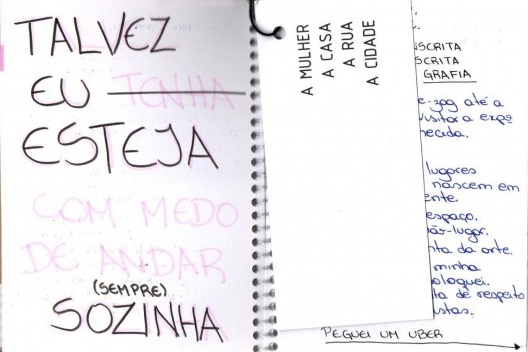 TALVEZ
EU TENHA
ESTEJA
COM MEDO
DE ANDAR
(SEMPRE)
SOZINHA
A MULHER
A CASA
A RUA
A CIDADE
SCRITA
SCRITA
GRAFIA
até a
visitar a expo
necida.
lugares
nascem em
ente.
espaço.
não-lugar.
nta da arte.
minha
oloquei.
ta de respeito
istas.
PEGUEI UM UBER